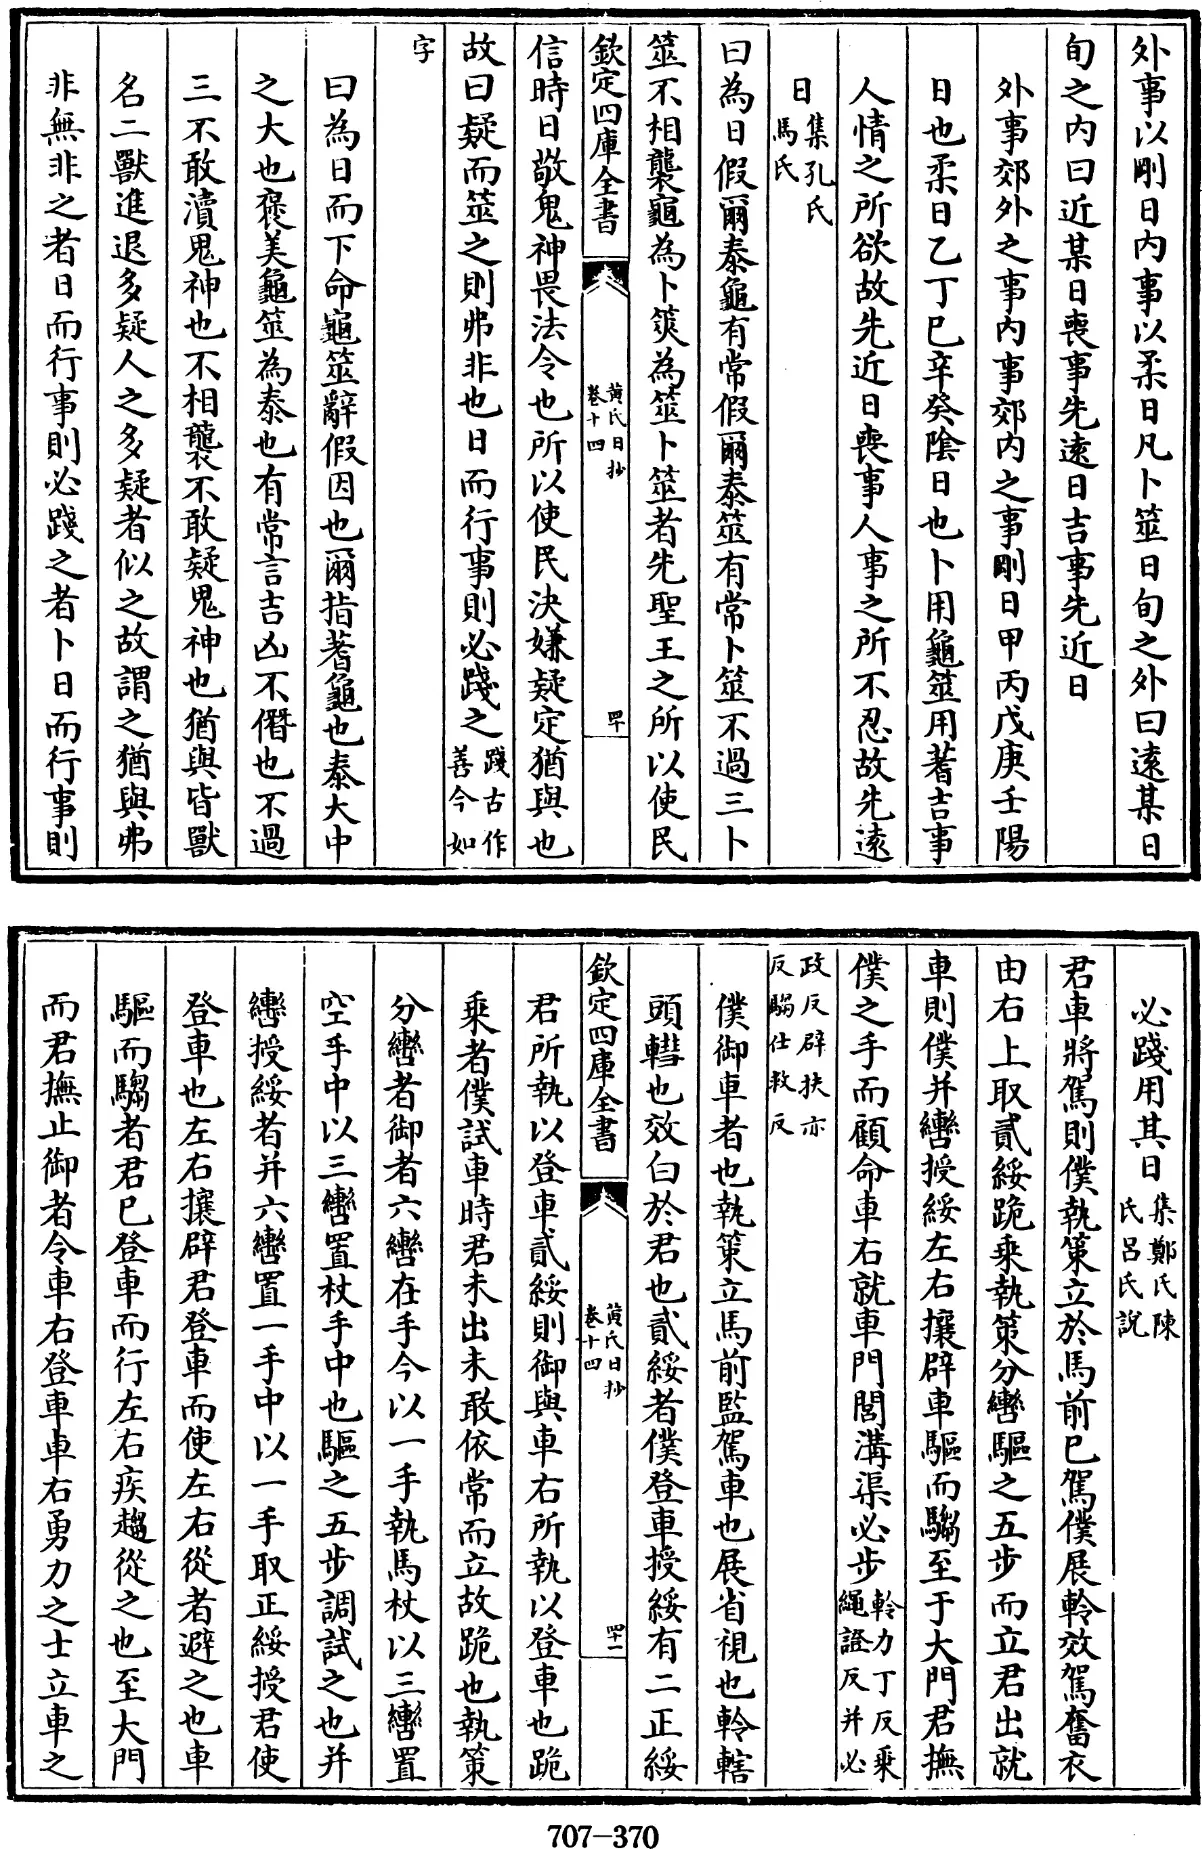 外事以剛日内事以柔日凡卜筮日旬之外曰逺某日
旬之内曰近某日喪事先逺日吉事先近日
外事郊外之事内事郊内之事剛日甲丙戊庚壬陽
日也柔日乙丁巳辛癸陰日也卜用龜筮用蓍吉事
人情之所欲故先近日喪事人事之所不忍故先逺
日集孔氏
馬氏
曰為日假爾泰龜有常假爾泰筮有常卜筮不過三卜
筮不相襲龜為卜筴為筮卜筮者先聖王之所以使民
欽定四庫全書
黄氏日抄
卷十四
四十
信時日敬鬼神畏法令也所以使民決嫌疑定猶與也
故曰疑而筮之則弗非也日而行事則必踐之踐古作
善今如
字
曰為日而下命龜筮辭假因也爾指蓍龜也泰大中
之大也褒美龜筮為泰也有常言吉凶不僭也不過
三不敢瀆鬼神也不相襲不敢疑鬼神也猶與皆獸
名二獸進退多疑人之多疑者似之故謂之猶與弗
非無非之者日而行事則必踐之者卜日而行事則
必踐用其日集鄭氏陳
氏吕氏説
君車將駕則僕執策立於馬前已駕僕展軨效駕奮衣
由右上取貳綏跪乗執策分轡驅之五步而立君出就
車則僕并轡授綏左右攘辟車驅而騶至于大門君撫
僕之手而顧命車右就車門閭溝渠必步軨力丁反乗
繩證反并必
政反辟扶亦
反騶仕救反
僕御車者也執策立馬前監駕車也展省視也軨轄
頭轊也效白於君也貳綏者僕登車授綏有二正綏
欽定四庫全書
黄氏日抄
卷十四
四十一
君所執以登車貳綏則御與車右所執以登車也跪
乗者僕試車時君未出未敢依常而立故跪也執策
分轡者御者六轡在手今以一手執馬杖以三轡置
空手中以三轡置杖手中也驅之五步調試之也并
轡授綏者并六轡置一手中以一手取正綏授君使
登車也左右攘辟君登車而使左右從者避之也車
驅而騶者君已登車而行左右疾趨從之也至大門
而君撫止御者令車右登車車右勇力之士立車之
707-370